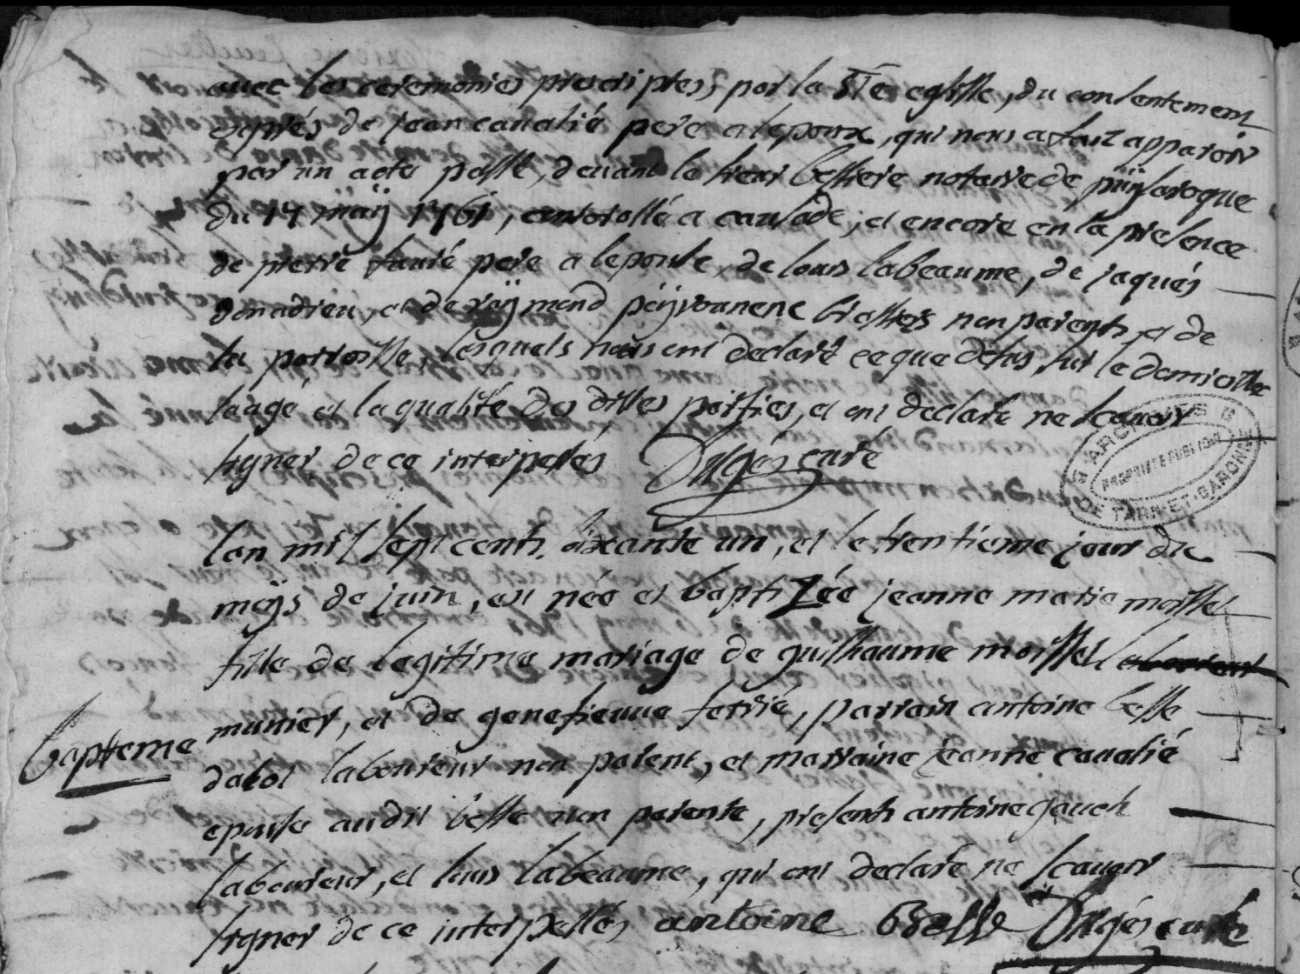 avec les ceremonies prescriptes par la Ste eglisse, du consentement
exprés de jean cavalié pere a lepoux, qui nous a fait apparoir
par un acte passé, devant le sieur bessiere notaire de puÿlaroque
du 14 maÿ 1761, controllé a caussade, et encore en la presence
de pierre faurié pere a lepouse, de louis labeaume, de jaqués
donadieu, et de raÿmond puÿ brassiers non parents, et de
la parroisse lesquels nous ont declaré ce que dessus, sur le domicille
laage, et la qualité des dittes parties, et ont declaré ne scavoir
signer de ce interpellés Dalgés curé
lan mil sept cents soixante un, et le trentieme jour du
moÿs de juin, est née et baptizée jeanne marie
fille de legitime mariage de guilhaume
munier, et de genevieuve ferrié, parrain antoine besse
laboureur non parent, et marraine jeanne cavalié
bapteme
epouse audit besse non parente, presents antoine gauch
laboureur, et louis labeaume, qui ont declaré ne scavoir
signer de ce interpellés antoine Besse Dalgés curé
ARCHIVES
PROPRIETE PUBLIQUE
DE TARN-ET-GARONNE